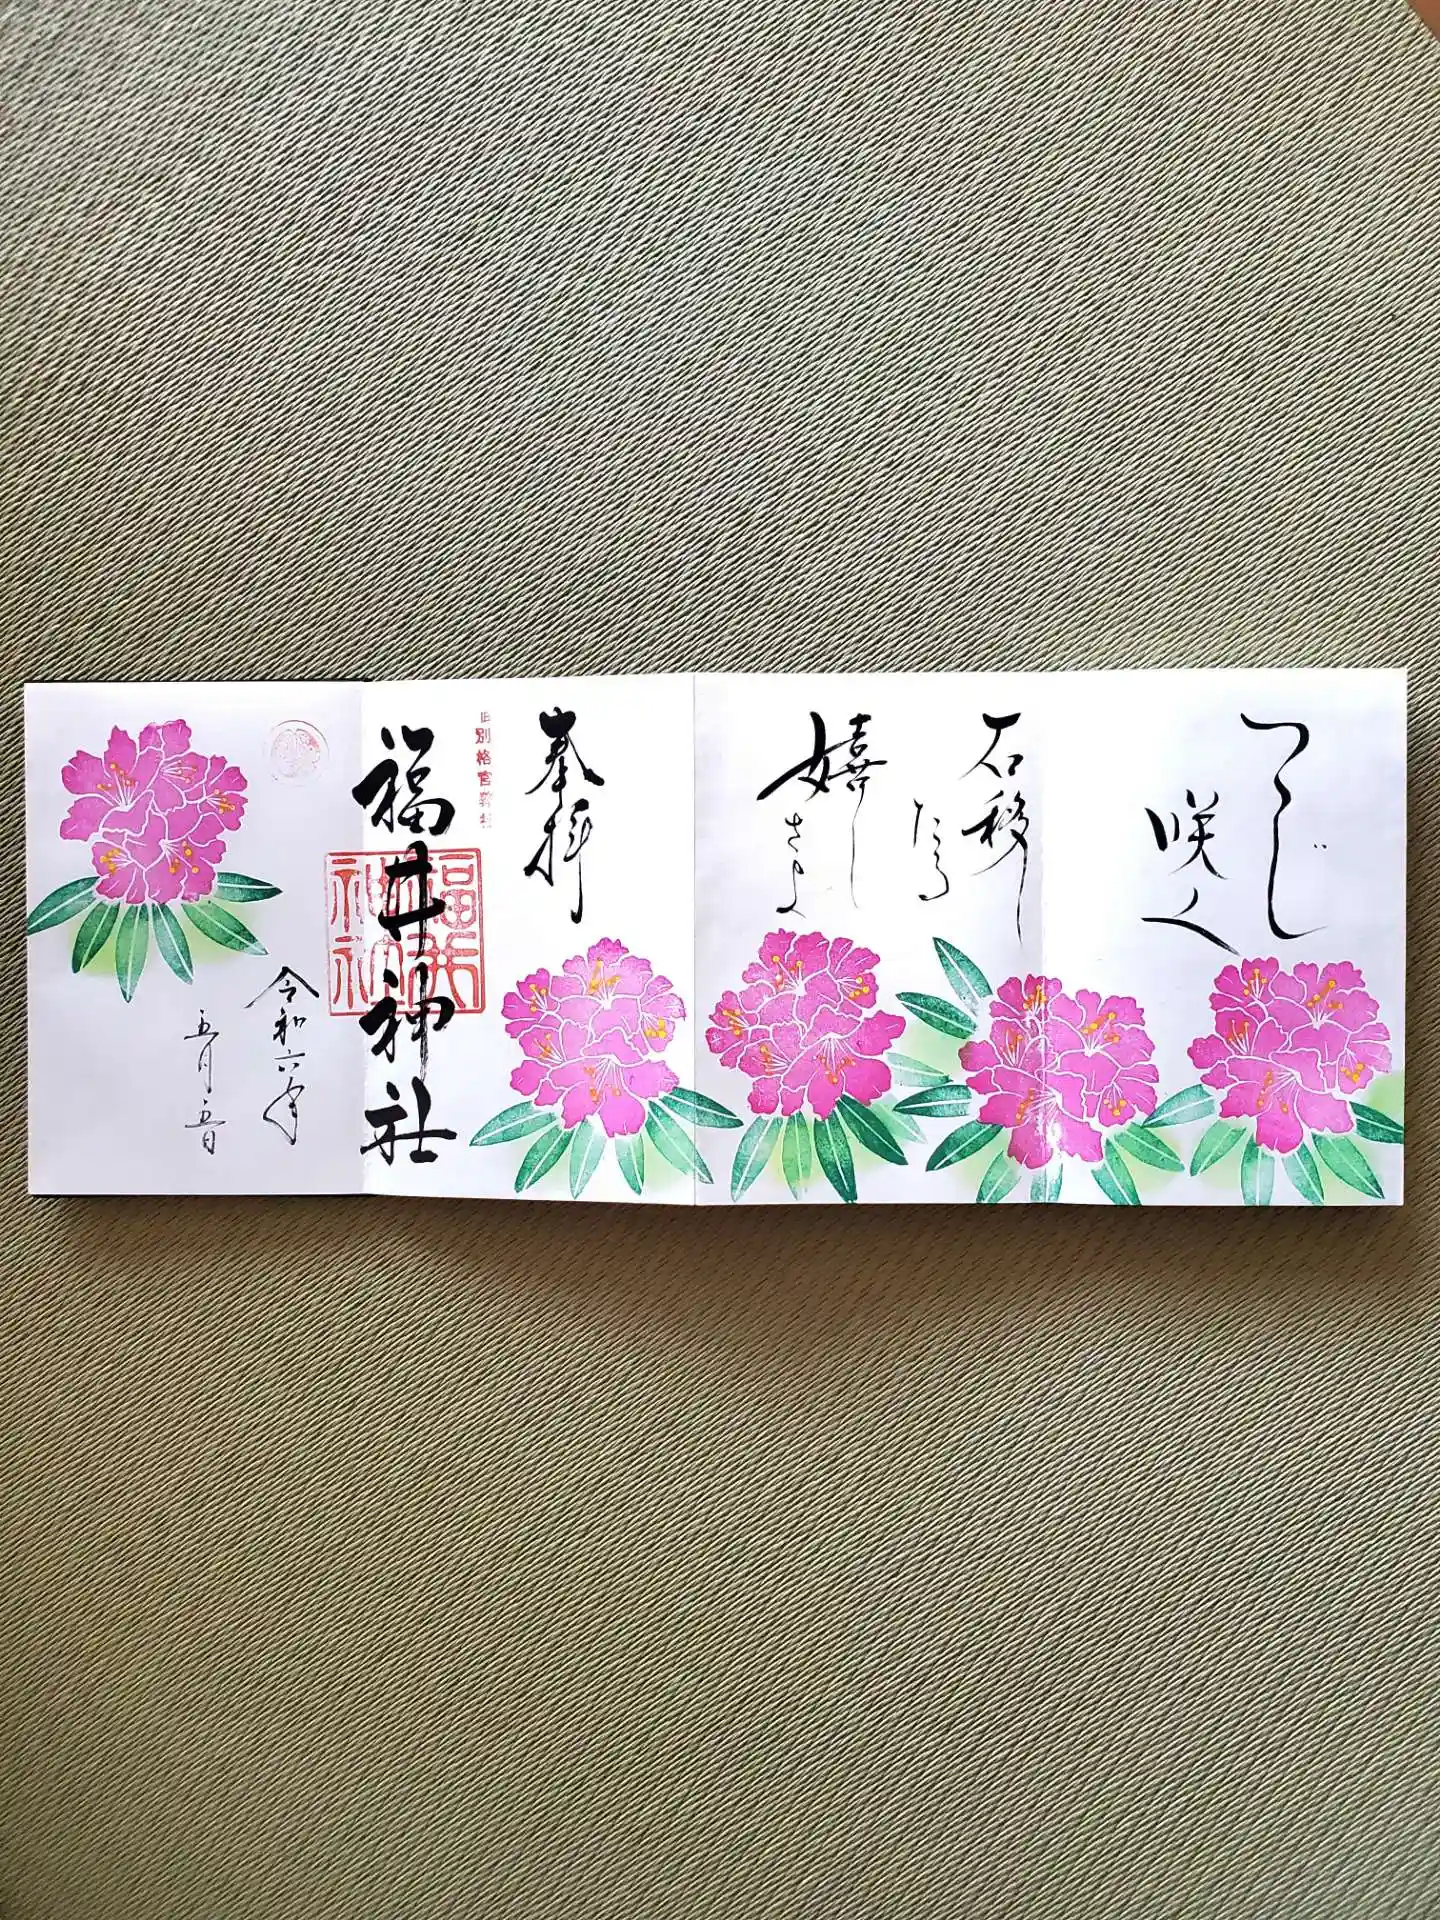 つつじ
咲く
石移し
たる
嬉しさよ
奉拝
旧別格官幣社
福井神社
福井
神社
令和六年
五月五日